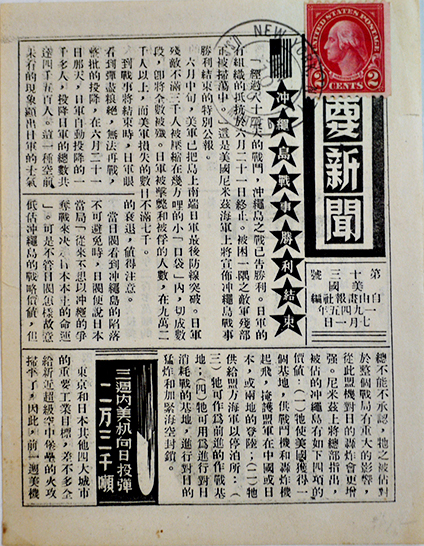 UNITED STATES POSTAGE
2 CENTS 2
NEW YORK
新聞
第十三號
美國
自由畫報社編
一九四五年
七月一日
沖繩島戰事勝利結束
「經過八十二天的戰鬥,沖繩島之戰已告勝利。日軍的
有組織的抵抗於六月二十一日終止。被困一隅之敵軍殘部
正被掃蕩中。」這是美國尼米茲海軍上將宣佈沖繩島戰事
勝利結束的特別公報。
六月中旬,美軍已把島上南端日軍最後防線突破。日軍
殘敵不滿二千人被壓縮在幾方哩的小「口袋」內,切成數
段,卽將全數被殲。日軍被擊斃和被俘的人數,在九萬二
千人以上,而美軍損失的數目不滿七千。
到戰事將結束時,日軍眼
看到彈盡粮絕,無法再戰,
整批的投降。在六月二十一
日那天,日軍自動投降的一
千多人,投降日軍的總數共
達四千五百人。這一種空前
未有的現象顯出日軍的士氣
的衰退,值得注意。
當日閥看到沖繩島的陷落
不可避免時,日閥便說日本
當局「從來不想以沖繩的爭
奪戰來决定日本本土的命運
」。可是不管日閥怎樣故意
低估沖繩島的戰略價值,但
總不能不承認,牠之被佔對
於整個戰局有重大的影響,
從此盟機對日的轟炸會更增
強。尼米茲上將總部指出,
被佔的沖繩島有如下四項的
價值:(一)牠使美國獲得一
個基地,供戰鬥機和轟炸機
起飛,掩護盟軍在中國或日
本,或兩地的登陸;(二)牠
供給盟方海軍以停泊所;(
三)牠可作爲前進的作戰基
地;(四)牠可用爲進行對日
消耗戰的基地,進行對日的
猛炸和加緊海空封鎖。
三週內美机向日投彈
二万二千噸
東京和日本其他四大城市
的重要工業目標,差不多全
給新近超級空中堡壘的火攻
掃平了。因此,前一週美機